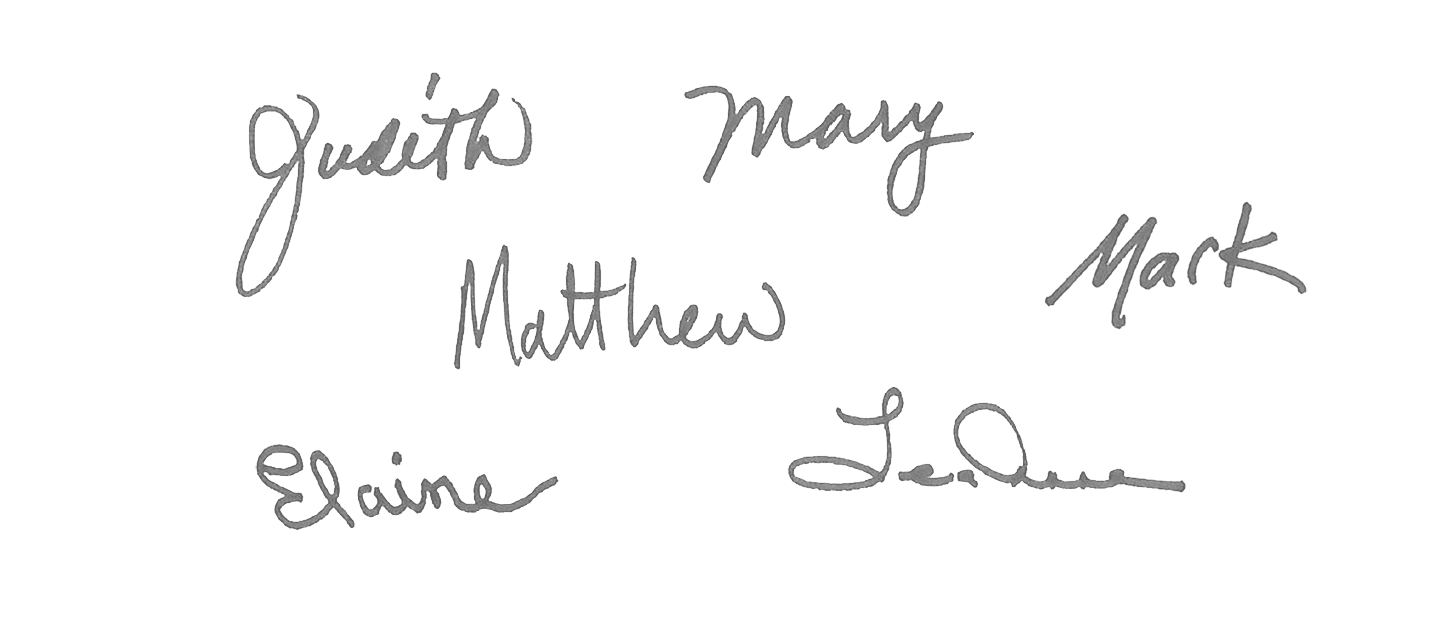 Judith Mary
Mark
Matthew
Elaine LeAnne